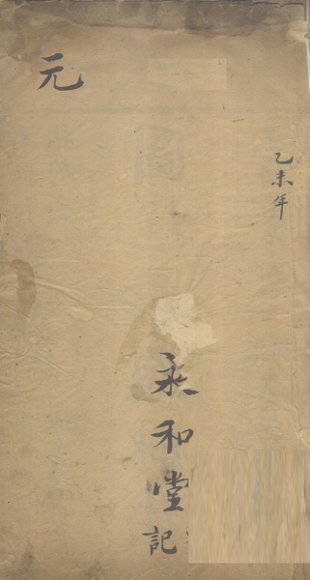 乙未年
永和堂記
元